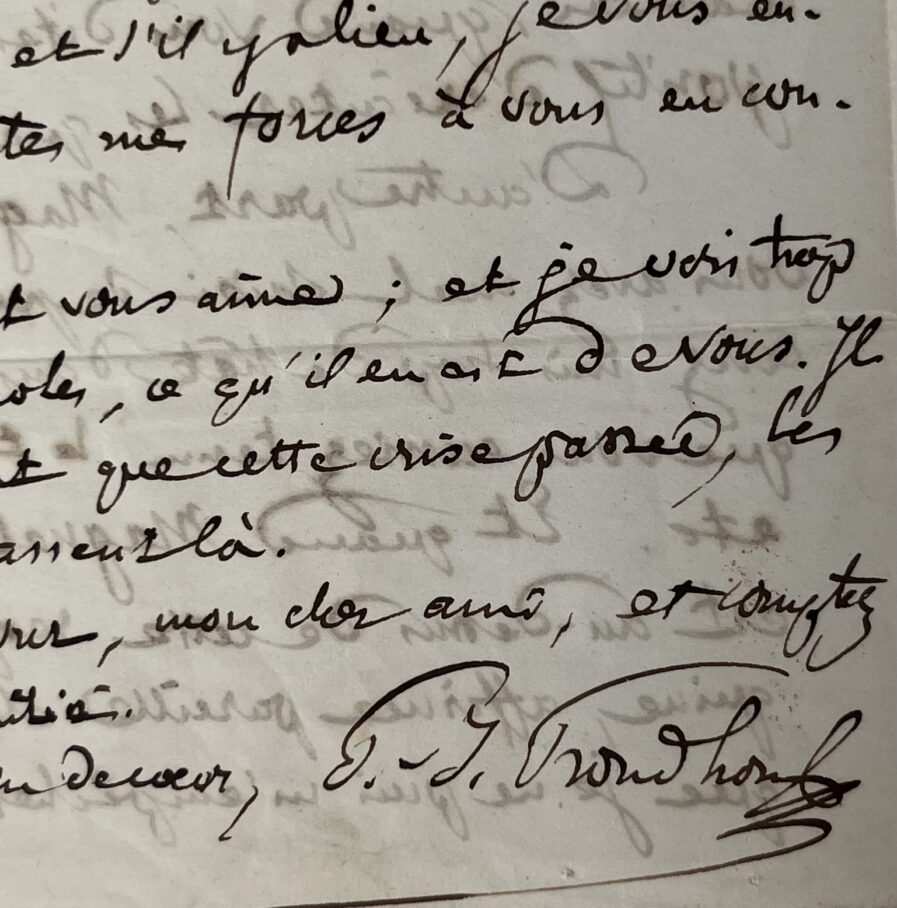 et s'il y a lieu, je vous en-
tes mes forces à vous en con-
t vous aime ; et je vois trop
oles, ce qu'il en est de Vous. Il
t que cette crise passée, les
là.
mon cher ami, et comptez
itié.
de cœur, P.-J. Proudhon